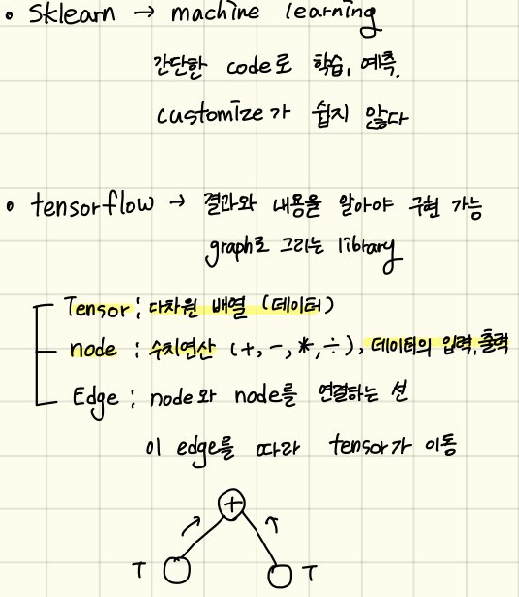 • Sklearn → machine learning
간단한 code로 학습, 예측.
customize가 쉽지 않다
• tensorflow → 결과와 내용을 알아야 구현 가능
graph로 그리는 library
Tensor : 다차원 배열 (데이터)
node : 수치연산 (+, -, *, ÷), 데이터의 입력, 출력
Edge : node와 node를 연결하는 선
이 edge를 따라 tensor가 이동
+
T T